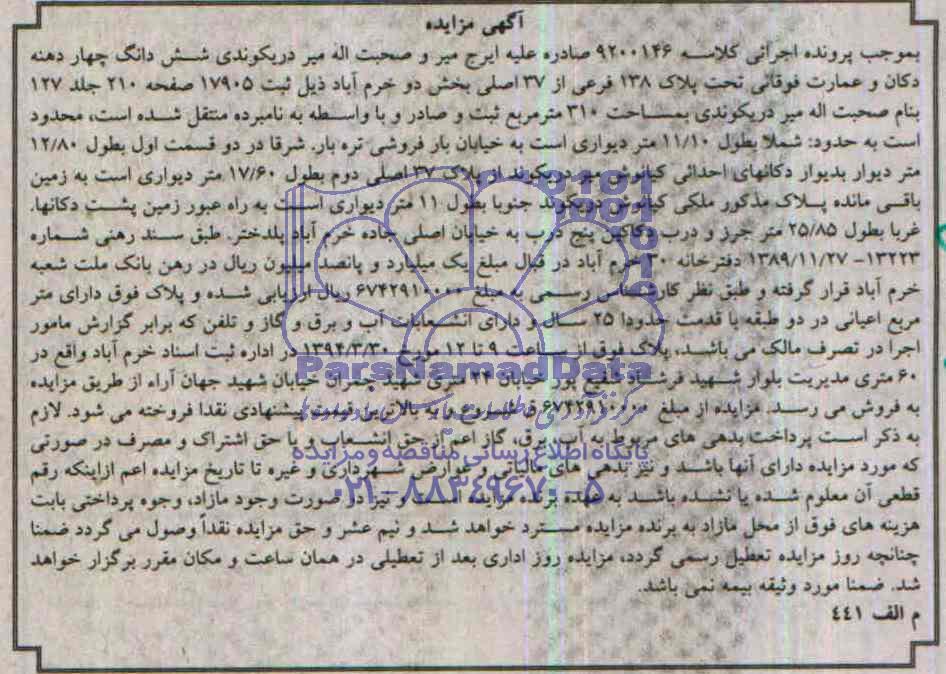 آگهی مزایده
بموجب پرونده اجرائی کلاسه ۹۲۰۰۱۴۶ صادره علیه ایرج میر و صحبت اله میر دریکوندی شش دانگ چهار دهنه
دکان و عمارت فوقانی تحت پلاک ۱۳۸ فرعی از ۳۷ اصلی بخش دو خرم آباد ذیل ثبت ۱۷۹۰۵ صفحه ۲۱۰ جلد ۱۲۷
بنام صحبت اله میر دریکوندی بمساحت ۳۱۰ مترمربع ثبت و صادر و با واسطه به نامبرده منتقل شده است، محدود
است به حدود: شملا بطول ۱۱/۱۰ متر دیواری است به خیابان بار فروشی تره بار. شرقا در دو قسمت اول بطول ۱۲/۸۰
متر دیوار بدیوار دکانهای احداثی کیانوش میر دریکوند از پلاک ۳۷ اصلی دوم بطول ۱۷/۶۰ متر دیواری است به زمین
باقی مانده پلاک مذکور ملکی کیانوش دریکوند جنوبا بطول ۱۱ متر دیواری است به راه عبور زمین پشت دکانها.
غربا بطول ۲۵/۸۵ متر جرز و درب دکاکین پنج درب به خیابان اصلی جاده خرم آباد پلدختر. طبق سند رهنی شماره
۱۳۲۲۳- ۱۳۸۹/۱۱/۲۷ دفترخانه ۳۰ خرم آباد در قبال مبلغ یک میلیارد و پانصد میلیون ریال در رهن بانک ملت شعبه
خرم آباد قرار گرفته و طبق نظر کارشناس رسمی به مبلغ ۶۷۴۲۹۱۰۰۰۰ ریال ارزیابی شده و پلاک فوق دارای متر
مربع اعیانی در دو طبقه با قدمت حدودا ۲۵ سال و دارای انشعابات آب و برق و گاز و تلفن که برابر گزارش مامور
اجرا در تصرف مالک می باشد، پلاک فوق از ساعت ۹ تا ۱۲ مورخ ۱۳۹۴/۳/۳۰ در اداره ثبت اسناد خرم آباد واقع در
۶۰ متری مدیریت بلوار شهید فرشاد شفیع پور خیابان ۲۴ متری شهید چمران خیابان شهید جهان آراء از طریق مزایده
به فروش می رسد. مزایده از مبلغ ۶۷۴۲۹۱۰۰۰۰ شروع و به بالاترین قیمت پیشنهادی نقدا فروخته می شود. لازم
به ذکر است پرداخت بدهی های مربوط به آب، برق، گاز اعم از حق انشعاب و یا حق اشتراک و مصرف در صورتی
که مورد مزایده دارای آنها باشد و نیز بدهی های مالیاتی و عوارض شهرداری و غیره تا تاریخ مزایده اعم ازاینکه رقم
قطعی آن معلوم شده یا نشده باشد به عهده برنده مزایده است و نیز در صورت وجود مازاد، وجوه پرداختی بابت
هزینه های فوق از محل مازاد به برنده مزایده مسترد خواهد شد و نیم عشر و حق مزایده نقداً وصول می گردد ضمنا
چنانچه روز مزایده تعطیل رسمی گردد، مزایده روز اداری بعد از تعطیلی در همان ساعت و مکان مقرر برگزار خواهد
شد. ضمنا مورد وثیقه بیمه نمی باشد.
م الف ۴۴۱
ParsNamadData
پایگاه اطلاع رسانی مناقصه و مزایده
۰۲۱-۸۸۳۴۹۶۷۰-۵